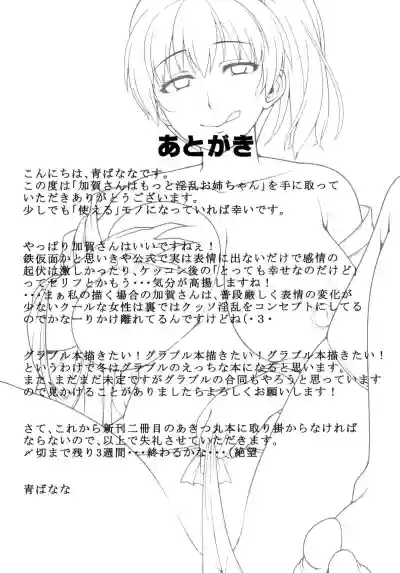 あとがき
こんにちは、青ばななです。
この度は「加賀さんはもっと淫乱お姉ちゃん」を手に取って
いただきありがとうございます。
少しでも「使える」モノになっていれば幸いです。
やっぱり加賀さんはいいですねぇ！
鉄仮面かと思いきや公式で実は表情に出ないだけで感情の
起伏は激しかったり、ケッコン後の「とっても幸せなのだけど」
ってセリフとかもう・・・気分が高揚しますね！
・・・まぁ私の描く場合の加賀さんは、普段厳しく表情の変化が
少ないクールな女性は裏ではクッソ淫乱をコンセプトにしてる
のでかなーりかけ離れてるんですけどね（・3・
グラブル本描きたい！グラブル本描きたい！グラブル本描きたい！
というわけで冬はグラブルのえっちな本になると思います。
また、まだまだ未定ですがグラブルの合同もやろうと思っています
ので見かけることがありましたらよろしくお願いします！
さて、これから新刊二冊目のあきつ丸本に取り掛からなければ
ならないので、以上で失礼させていただきます。
〆切まで残り3週間・・・終わるかな・・・（絶望
青ばなな